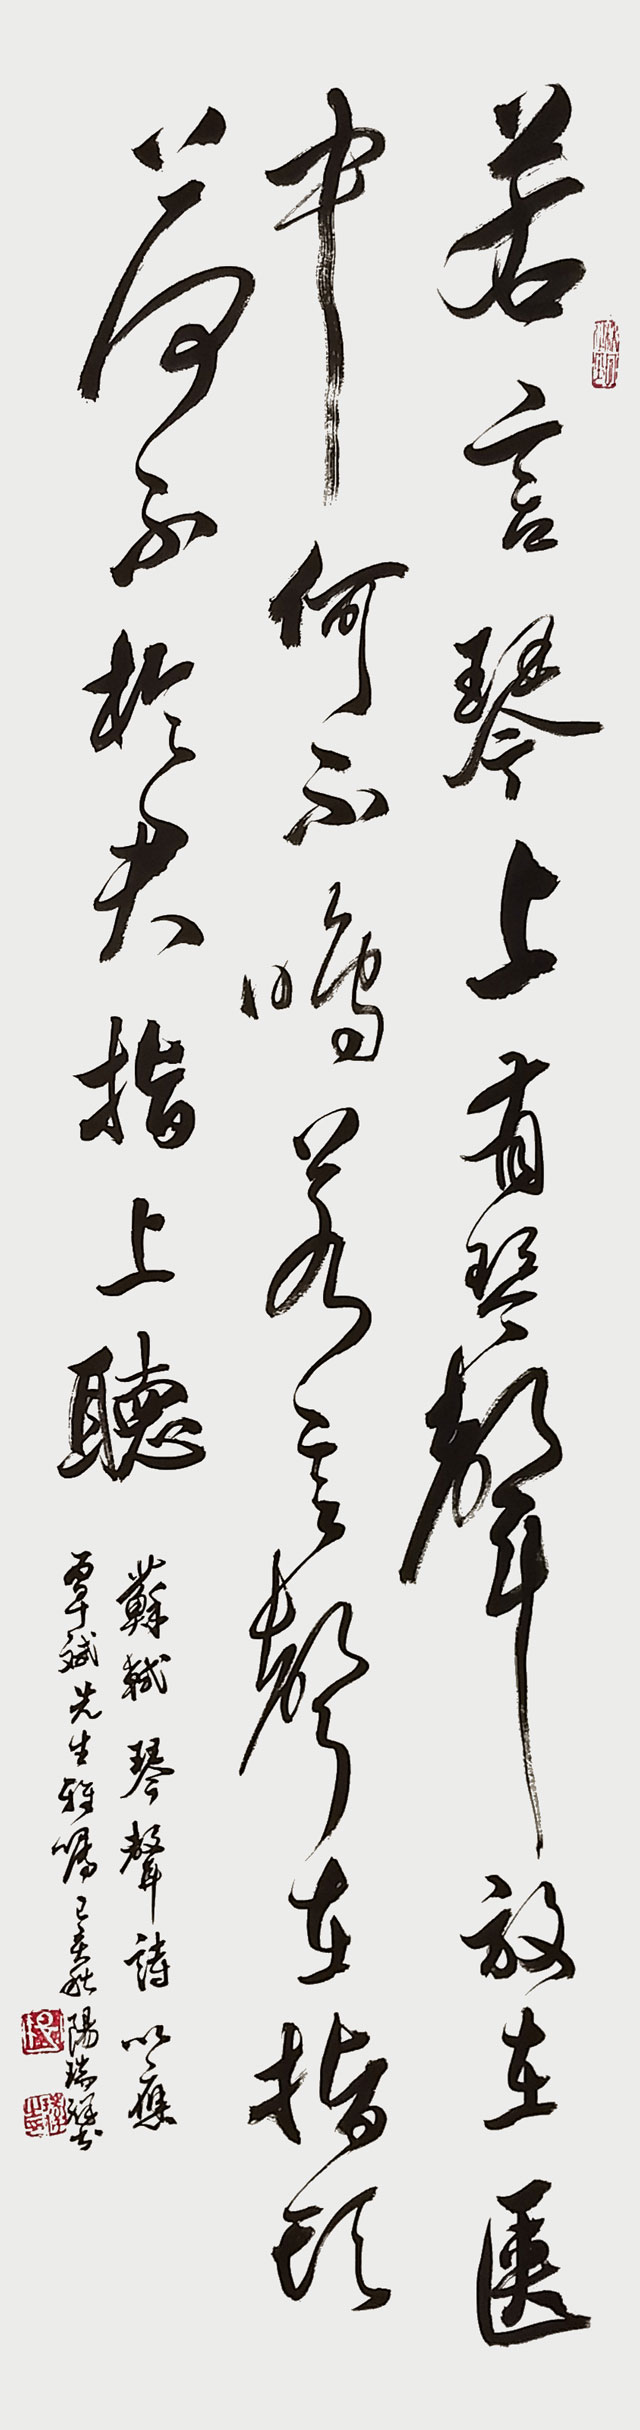 若言琴上有琴聲放在匣
中何不鳴若言聲在指頭
何不於君指上聽
蘇軾琴聲詩以應
覃斌先生雅囑己亥秋陽瑞祥书